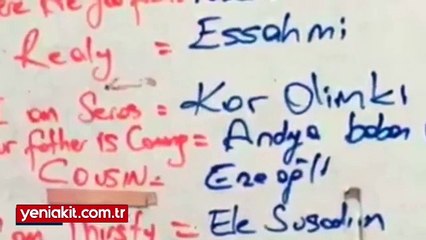 Realy = Essahmi
I am Seros = Kor Olimki
father is Coming = Andya baban
COUSIN = Eze oğlı
I am Thirsty = Ele Susadim
yeniakit.com.tr